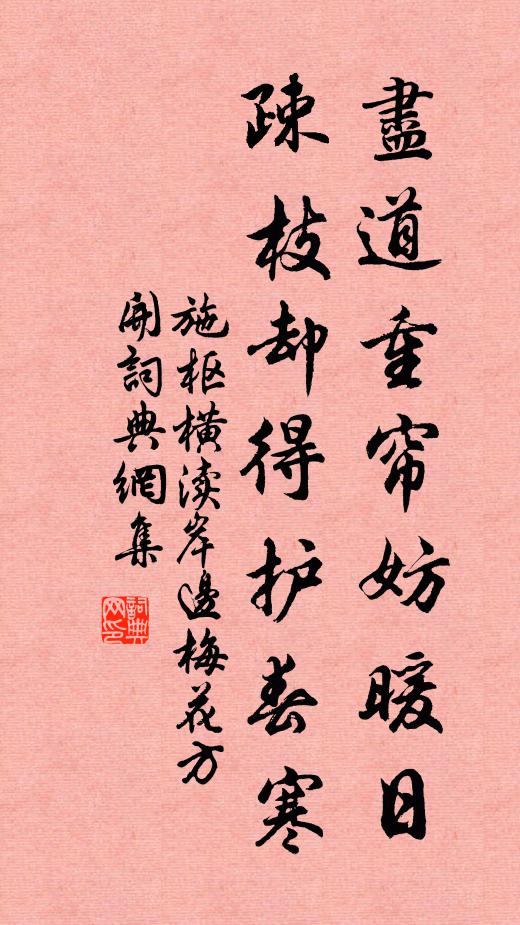 盡道重帘妨暖日
疎枝却得护春寒
施枢橫渎岸邊梅花方
開詞典網集
詞典
网印